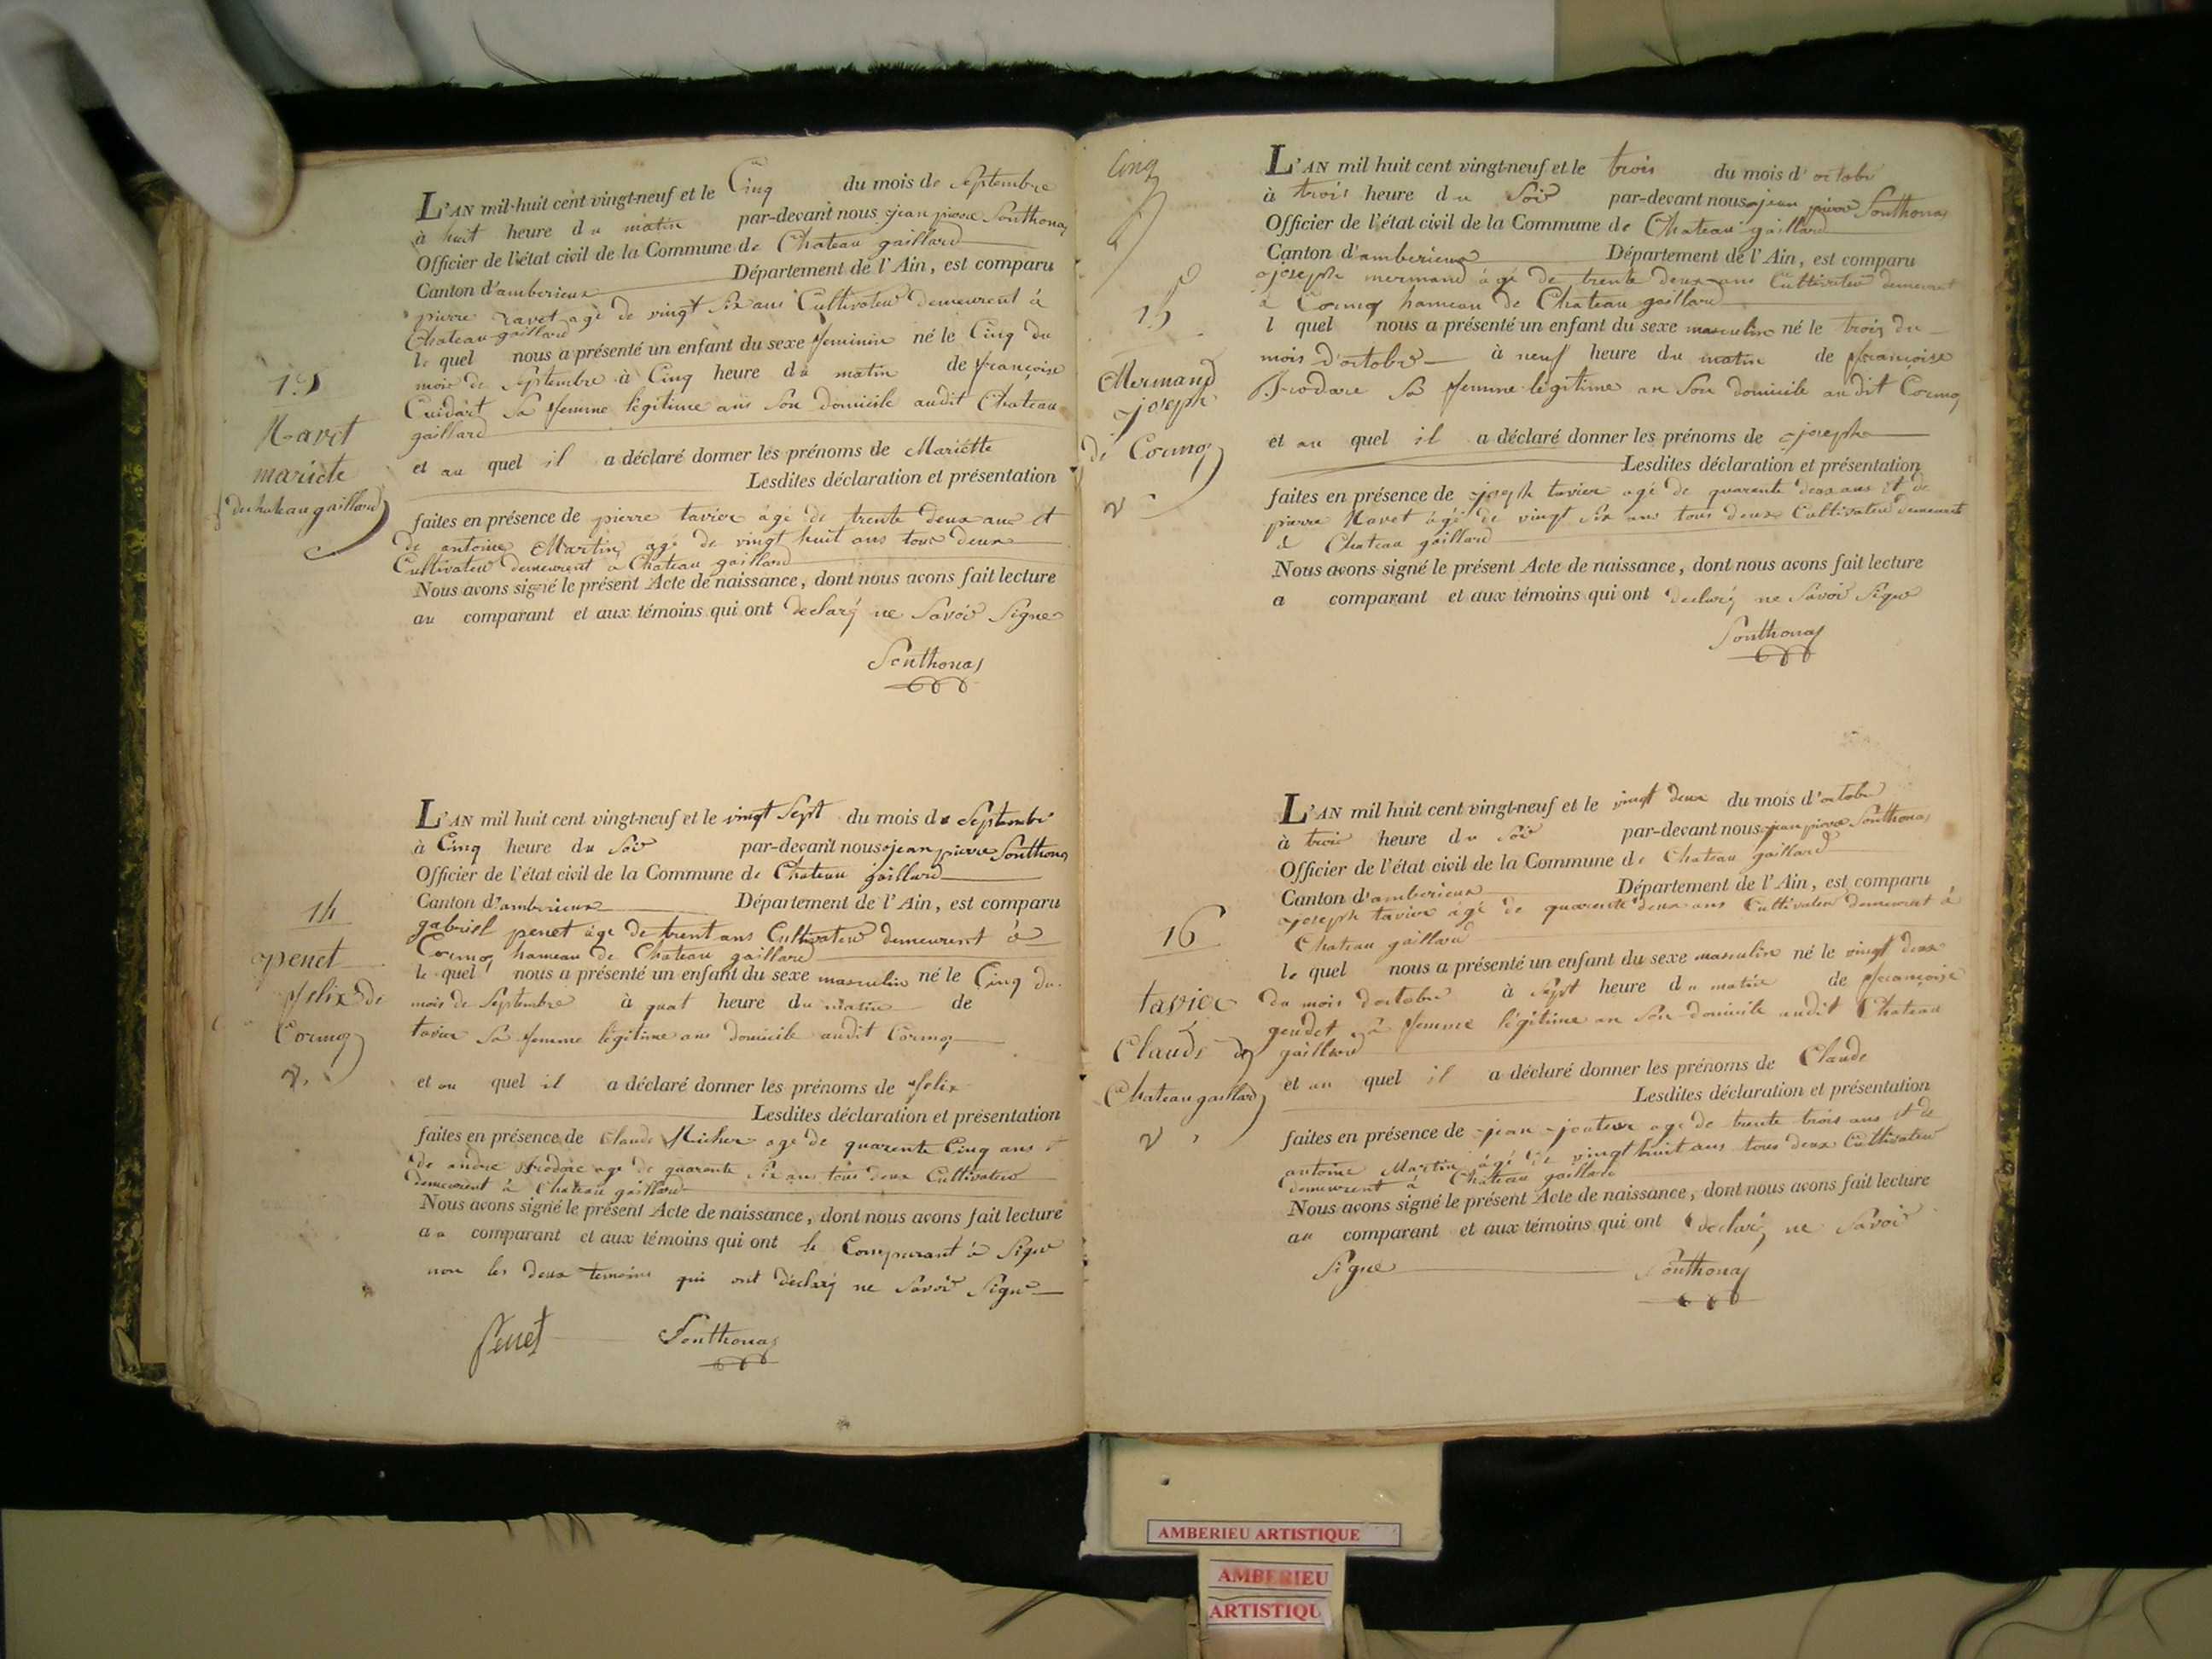 13
Ravet
mariete
de chateau gaillard
L'AN mil huit cent vingt-neuf et le Cinq du mois de Septembre
à huit heure du matin par-devant nous jean pierre Sonthonas
Officier de l'état civil de la Commune de Chateau gaillard
Canton d'amberieux Département de l'Ain, est comparu
pierre ravet agé de vingt six ans Cultivateur demeurent à
Chateau gaillard
le quel nous a présenté un enfant du sexe feminin né le Cinq du
mois de Septembre à Cinq heure du matin de françoise
Cuidart sa femme legitime ans son domicile audit Chateau
gaillard
et au quel il a déclaré donner les prénoms de Mariette
Lesdites déclaration et présentation
faites en présence de pierre tavier âgé de trente deux ans et
de antoine Martin agé de vingt huit ans tous deux
Cultivateur demeurent a Chateau gaillard
Nous avons signé le présent Acte de naissance, dont nous avons fait lecture
au comparant et aux témoins qui ont declaré ne Savoir Signe
Sonthonas
14
penet
felix de
Cormoz
L'AN mil huit cent vingt-neuf et le vingt Sept du mois de Septembre
à Cinq heure du Soir par-devant nous jean pierre Sonthonas
Officier de l'état civil de la Commune de Chateau gaillard
Canton d'amberieux Département de l'Ain, est comparu
gabriel penet âgé de trent ans Cultivateur demeurent à
Cormoz hameau de Chateau gaillard
le quel nous a présenté un enfant du sexe masculin né le Cinq du
mois de Septembre à quat heure du matin de
tavier Sa femme légitime ans domicile audit Cormoz
et au quel il a déclaré donner les prénoms de felix
Lesdites déclaration et présentation
faites en présence de Claude Richer agé de quarente Cinq ans et
de andre frodare agé de quarante Six ans tous deux Cultivateur
demeurent à Chateau gaillard
Nous avons signé le présent Acte de naissance, dont nous avons fait lecture
au comparant et aux témoins qui ont le Comparant à Signé
non les deux temoins qui ont déclaré ne Savoir Signé
Penet Sonthonas
Cinq
15
Mermand
joseph
de Cormoz
L'AN mil huit cent vingt-neuf et le trois du mois d'octobre
à trois heure du Soir par-devant nous jean pierre Sonthonas
Officier de l'état civil de la Commune de Chateau gaillard
Canton d'amberieux Département de l'Ain, est comparu
joseph mermand âgé de trente deux ans Cultivateur demeurant
à Cormoz hameau de Chateau gaillard
l quel nous a présenté un enfant du sexe masculin né le trois du
mois d'octobre à neuf heure du matin de françoise
frodare Sa femme legitime an Son domicile audit Cormoz
et au quel il a déclaré donner les prénoms de joseph
Lesdites déclaration et présentation
faites en présence de joseph tavier agé de quarente deux ans et de
pierre Ravet âgé de vingt six ans tous deux Cultivateur demeurent
à Chateau gaillard
Nous avons signé le présent Acte de naissance, dont nous avons fait lecture
a comparant et aux témoins qui ont declaré ne Savoir Signé
Sonthonas
16
tavier
Claude de
Chateau gaillard
L'AN mil huit cent vingt-neuf et le vingt deux du mois d'octobre
à trois heure du Soir par-devant nous jean pierre Sonthonas
Officier de l'état civil de la Commune de Chateau gaillard
Canton d'amberieux Département de l'Ain, est comparu
joseph tavier âgé de quarente deux ans Cultivateur demeurent à
Chateau gaillard
le quel nous a présenté un enfant du sexe masculin né le vingt deux
du mois d'octobre à Sept heure du matin de françoise
gendet sa femme légitime an Son domicile audit Chateau
gaillard
et au quel il a déclaré donner les prénoms de Claude
Lesdites déclaration et présentation
faites en présence de jean agé de trente trois ans et de
antoine Martin âgé de vingt huit ans tous deux Cultivateur
demeurent à Chateau gaillard
Nous avons signé le présent Acte de naissance, dont nous avons fait lecture
au comparant et aux témoins qui ont declaré ne Savoir
Signé Sonthonas
AMBERIEU ARTISTIQUE
AMBERIEU
ARTISTIQU